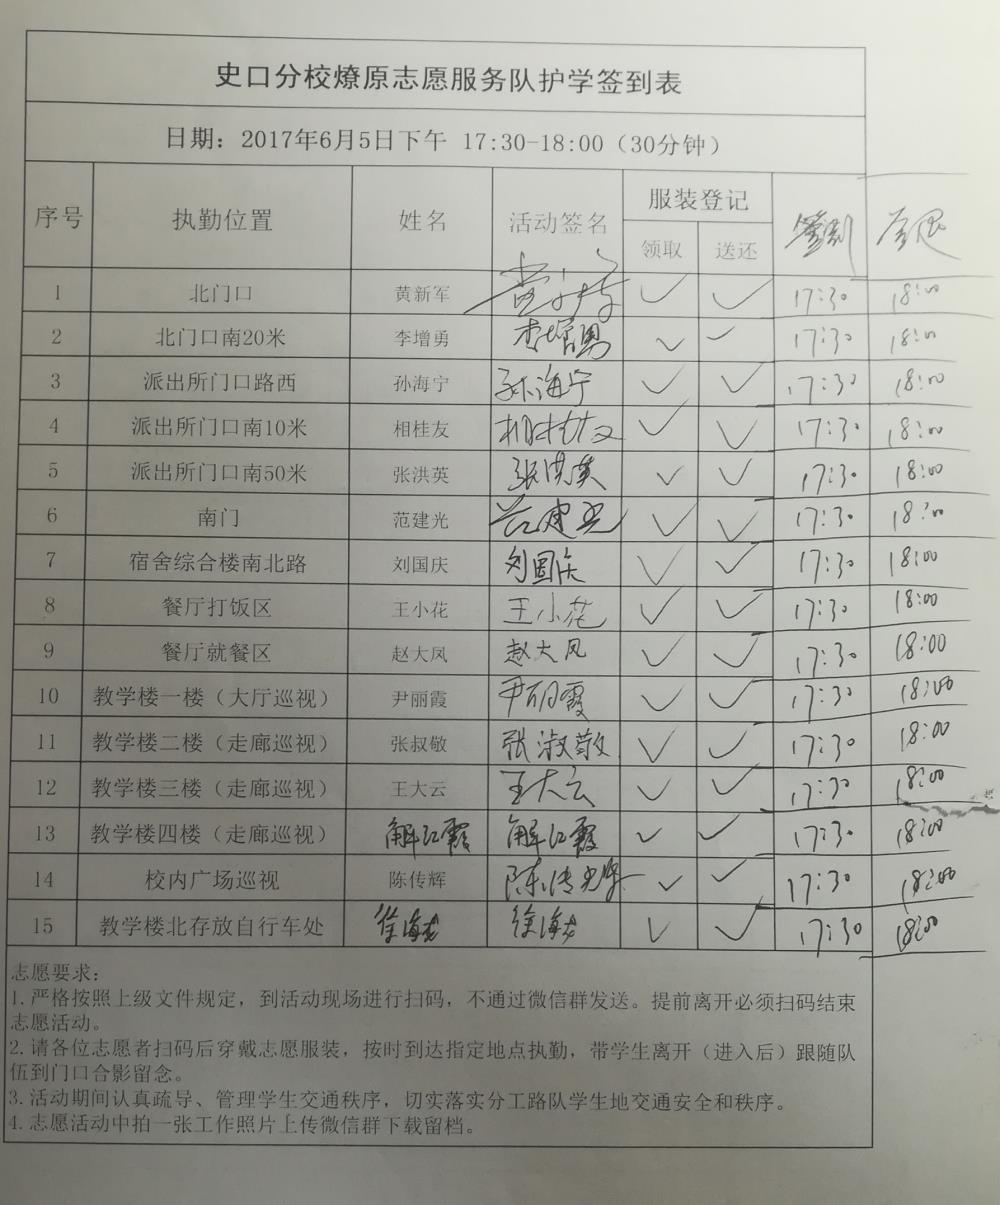 史口分校燎原志愿服务队护学签到表
日期：2017年6月5日下午 17:30-18:00（30分钟）
序号 执勤位置 姓名 活动签名 服装登记 签到
领取 送还
1 北门口 黄新军 黄新军 ✓ ✓ 17:30 18:00
2 北门口南20米 李增勇 李增勇 ✓ ✓ 17:30 18:00
3 派出所门口路西 孙海宁 孙海宁 ✓ ✓ 17:30 18:00
4 派出所门口南10米 相桂友 相桂友 ✓ ✓ 17:30 18:00
5 派出所门口南50米 张洪英 张洪英 ✓ ✓ 17:30 18:00
6 南门 范建光 范建光 ✓ ✓ 17:30 18:00
7 宿舍综合楼南北路 刘国庆 刘国庆 ✓ ✓ 17:30 18:00
8 餐厅打饭区 王小花 王小花 ✓ ✓ 17:30 18:00
9 餐厅就餐区 赵大凤 赵大凤 ✓ ✓ 17:30 18:00
10 教学楼一楼（大厅巡视） 尹丽霞 尹丽霞 ✓ ✓ 17:30 18:00
11 教学楼二楼（走廊巡视） 张叔敬 张淑敬 ✓ ✓ 17:30 18:00
12 教学楼三楼（走廊巡视） 王大云 王大云 ✓ ✓ 17:30 18:00
13 教学楼四楼（走廊巡视） 解红霞 解红霞 ✓ ✓ 17:30 18:00
14 校内广场巡视 陈传辉 陈传辉 ✓ ✓ 17:30 18:00
15 教学楼北存放自行车处 徐海龙 徐海龙 ✓ ✓ 17:30 18:00
志愿要求：
1. 严格按照上级文件规定，到活动现场进行扫码，不通过微信群发送。提前离开必须扫码结束
志愿活动。
2. 请各位志愿者扫码后穿戴志愿服装，按时到达指定地点执勤，带学生离开（进入后）跟随队
伍到门口合影留念。
3. 活动期间认真疏导、管理学生交通秩序，切实落实分工路队学生地交通安全和秩序。
4. 志愿活动中拍一张工作照片上传微信群下载留档。